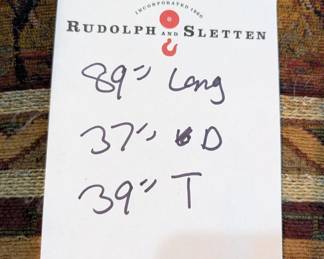 INCORPORATED 1960
RUDOLPH AND SLETTEN
89" Long
37" D
39" T